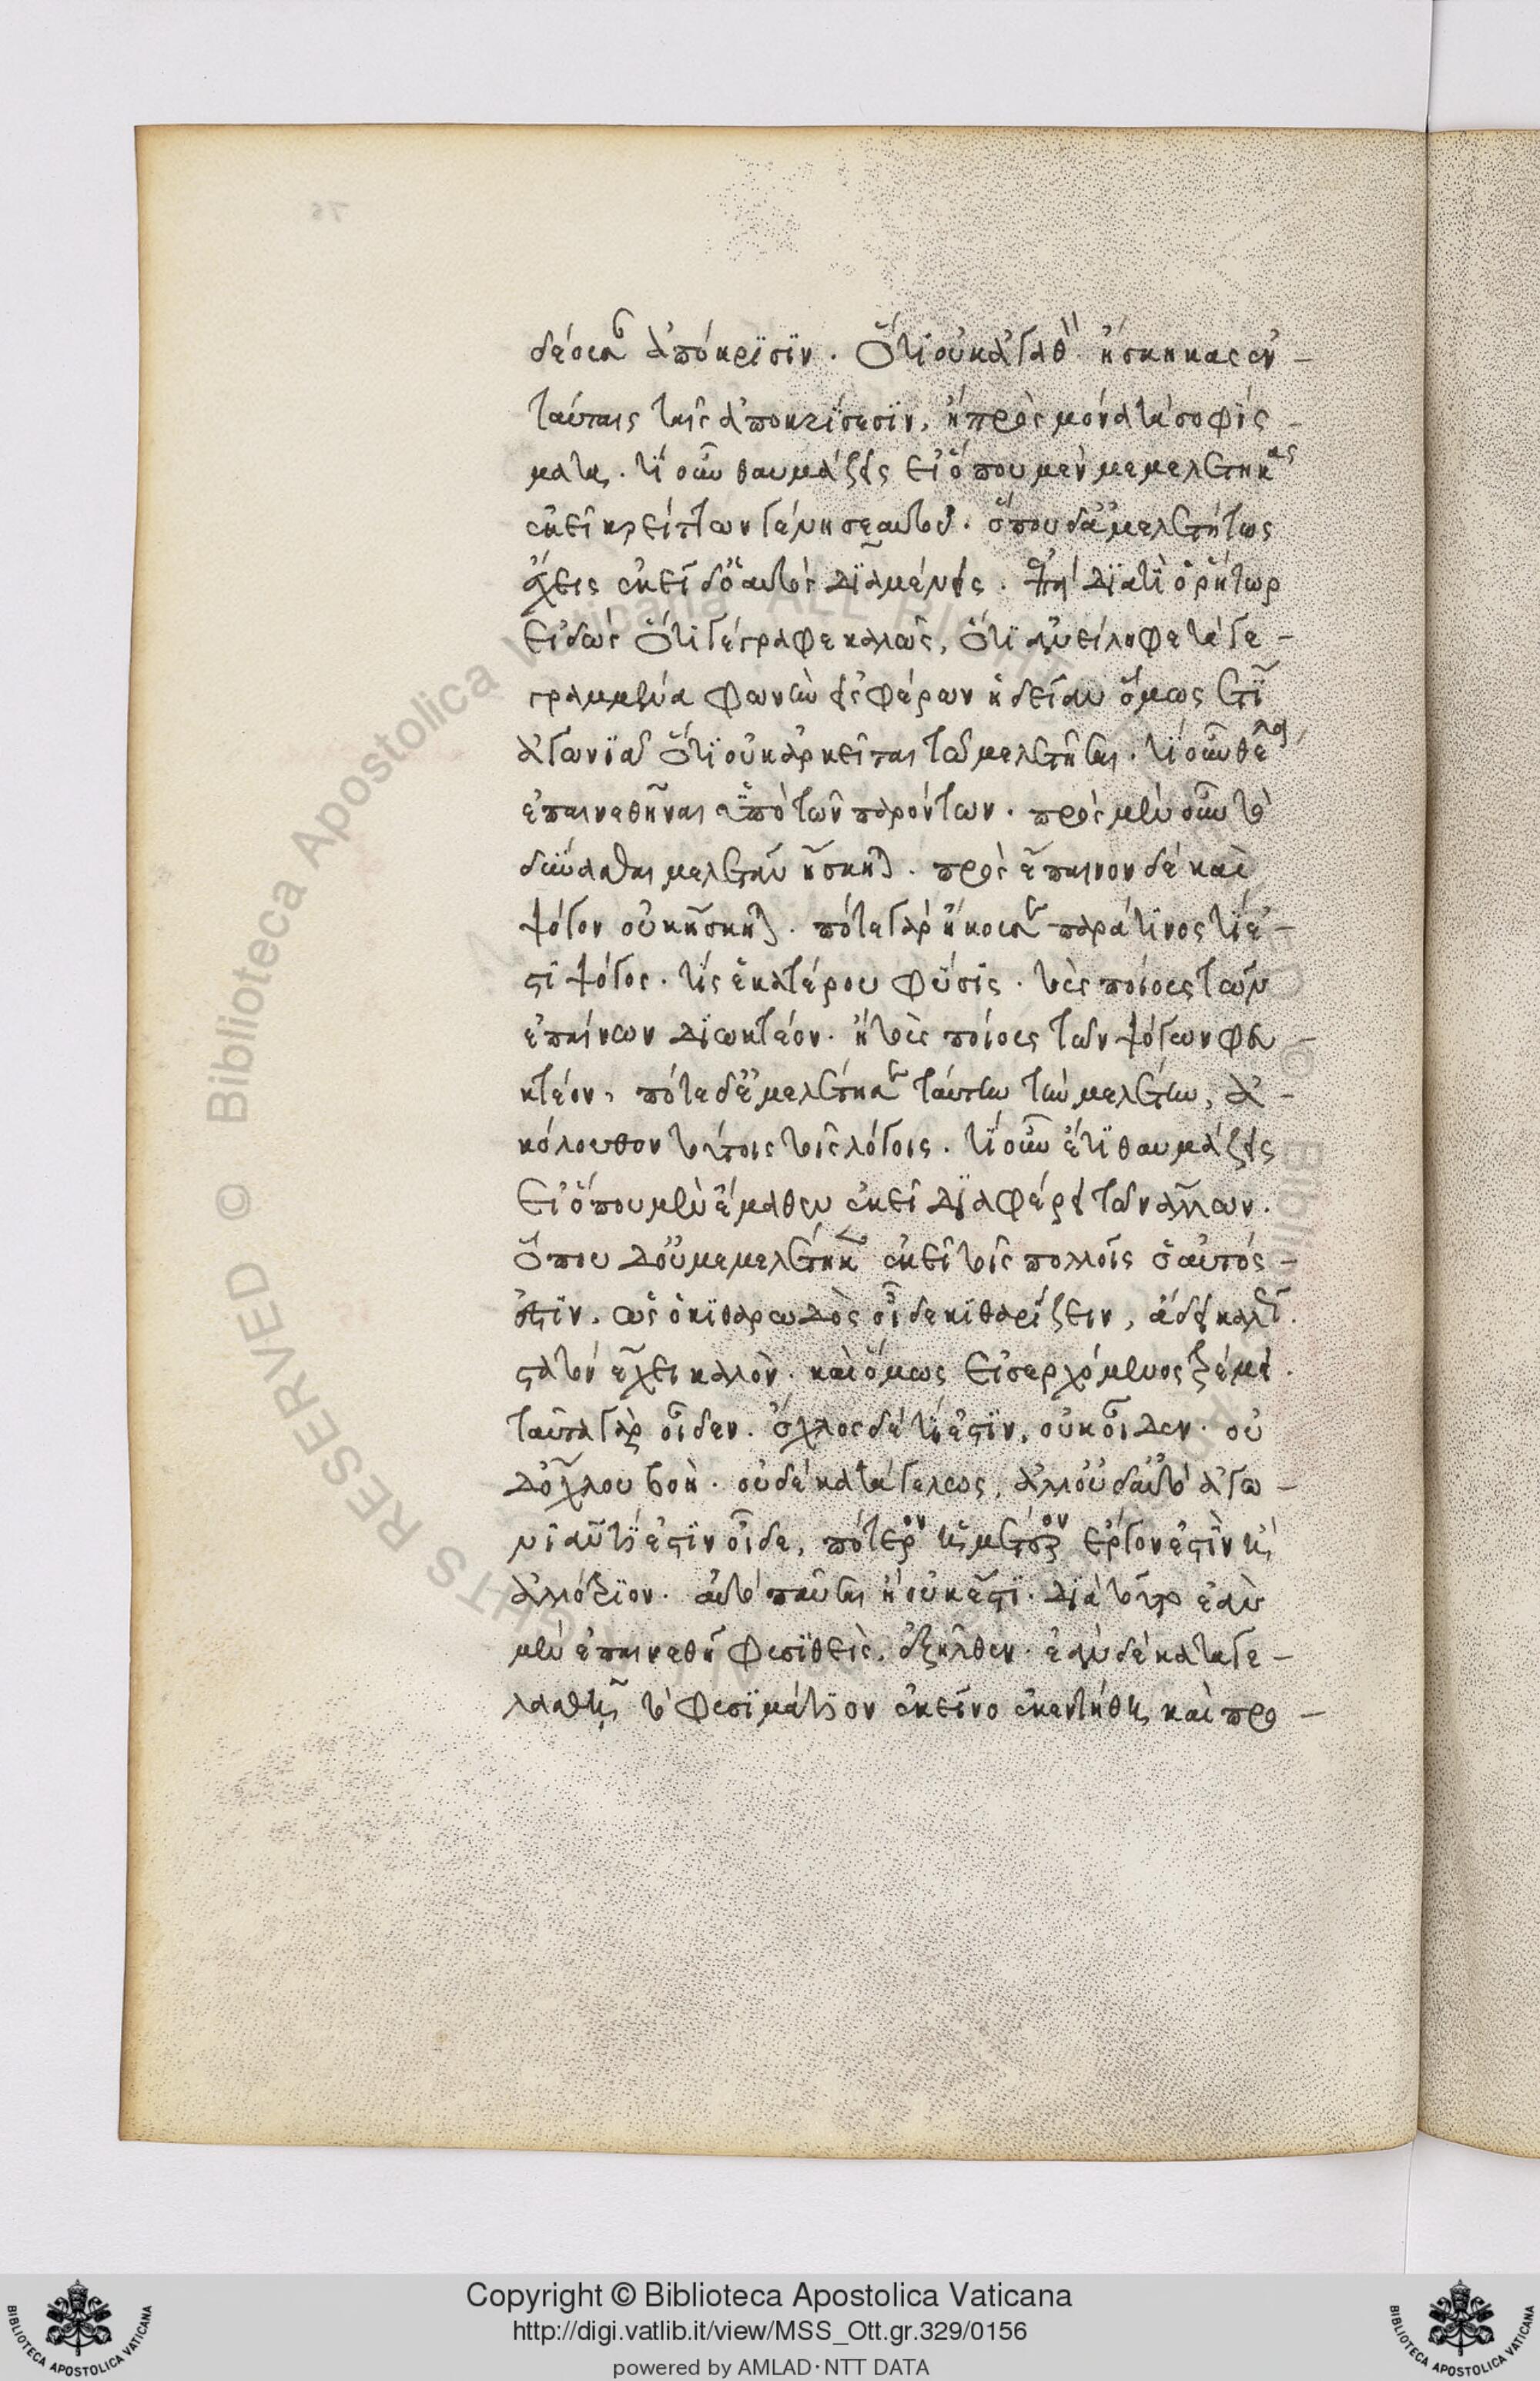 δέουσαν ἀπόκρισιν. Ὅτι οὐκ ἤσκηκας ἐν -
ταύταις ταῖς ἀποκρίσεσιν, ἢ πρὸς μόνα τὰ σοφίς -
ματα. τί οὖν θαυμάζεις εἰ ὅπου μὲν μεμελέτηκας
ἐκεῖ κρείττων γένῃ σεαυτοῦ. ὅπου δ' ἀμελετήτως
ἔχεις ἐκεῖ δ' ὁ αὐτὸς διαμένεις. ἐπεὶ διατὶ ὁ ῥήτωρ
εἰδὼς ὅτι γέγραφε καλῶς, ὅτι ἀνείληφε τὰ γε -
γραμμένα φωνὴν εἰσφέρων ἡδεῖαν ὅμως ἔτι
ἀγωνιᾷ ὅτι οὐκ ἀρκεῖται τῷ μελετῆσαι. τί οὖν θέλει
ἐπαινεθῆναι ὑπὸ τῶν παρόντων. πρὸς μὲν οὖν τὸ
δύνασθαι μελετᾶν ἤσκηται. πρὸς ἔπαινον δὲ καὶ
ψόγον οὐκ ἤσκηται. πότε γὰρ ἤκουσεν παρά τινος τί ἐ -
στὶ ψόγος. τίς ἑκατέρου φύσις. τοὺς ποίους τῶν
ἐπαίνων διωκτέον. ἢ τοὺς ποίους τῶν ψόγων φευ -
κτέον. πότε δ' ἐμελέτησεν ταύτην τὴν μελέτην, ἀ -
κόλουθον τούτοις τοῖς λόγοις. τί οὖν ἔτι θαυμάζεις
εἰ ὅπου μὲν ἔμαθεν ἐκεῖ διαφέρει τῶν ἄλλων.
ὅπου δ' οὐ μεμελέτηκεν ἐκεῖ τοῖς πολλοῖς ὁ αὐτός -
ἐστιν. ὡς ὁ κιθαρωδὸς οἶδε κιθαρίζειν, ᾄδει καλῶς.
στατὸν ἔχει καλὸν. καὶ ὅμως εἰσερχόμενος τρέμει.
ταῦτα γὰρ οἶδεν. ὄχλος δὲ τί ἐστιν, οὐκ οἶδεν. οὐ
δ' ὄχλου βοὴ. οὐδὲ κατάγελως, ἀλλ' οὐδ' αὐτὸ ἀγω -
νιᾶν τί ἐστιν οἶδε, πότερον ἡμέτερον ἔργον ἐστὶν ἢ
ἀλλότριον. αὐτὸ παῦσαι ἢ οὐκ ἔστι. διὰ τοῦτο ἐὰν
μὲν ἐπαινεθῇ φυσιθεὶς ἐξῆλθεν. ἐὰν δὲ καταγε -
λασθῇ τὸ φυσιμάτιον ἐκεῖνο ἐκεντήθη καὶ προ -
Biblioteca Apostolica Vaticana ALL RIGHTS RESERVED ©
Copyright © Biblioteca Apostolica Vaticana
http://digi.vatlib.it/view/MSS_Ott.gr.329/0156
powered by AMLAD·NTT DATA
BIBLIOTECA APOSTOLICA VATICANA
BIBLIOTECA APOSTOLICA VATICANA